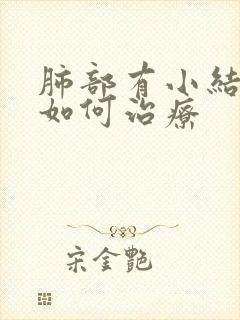 肺部有小結
如何治療
宋金艷